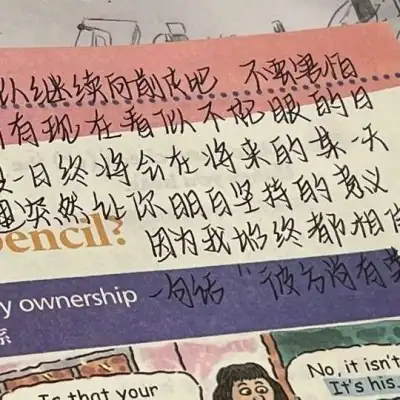 以继续向前走吧 不要害怕
有现在看似不起眼的日
一日终将会在将来的某一天
突然让你明白坚持的意义
pencil?
因为我始终都相信
y ownership
一句话 "彼方尚有
系
Is that your
No, it isn't
It's his.